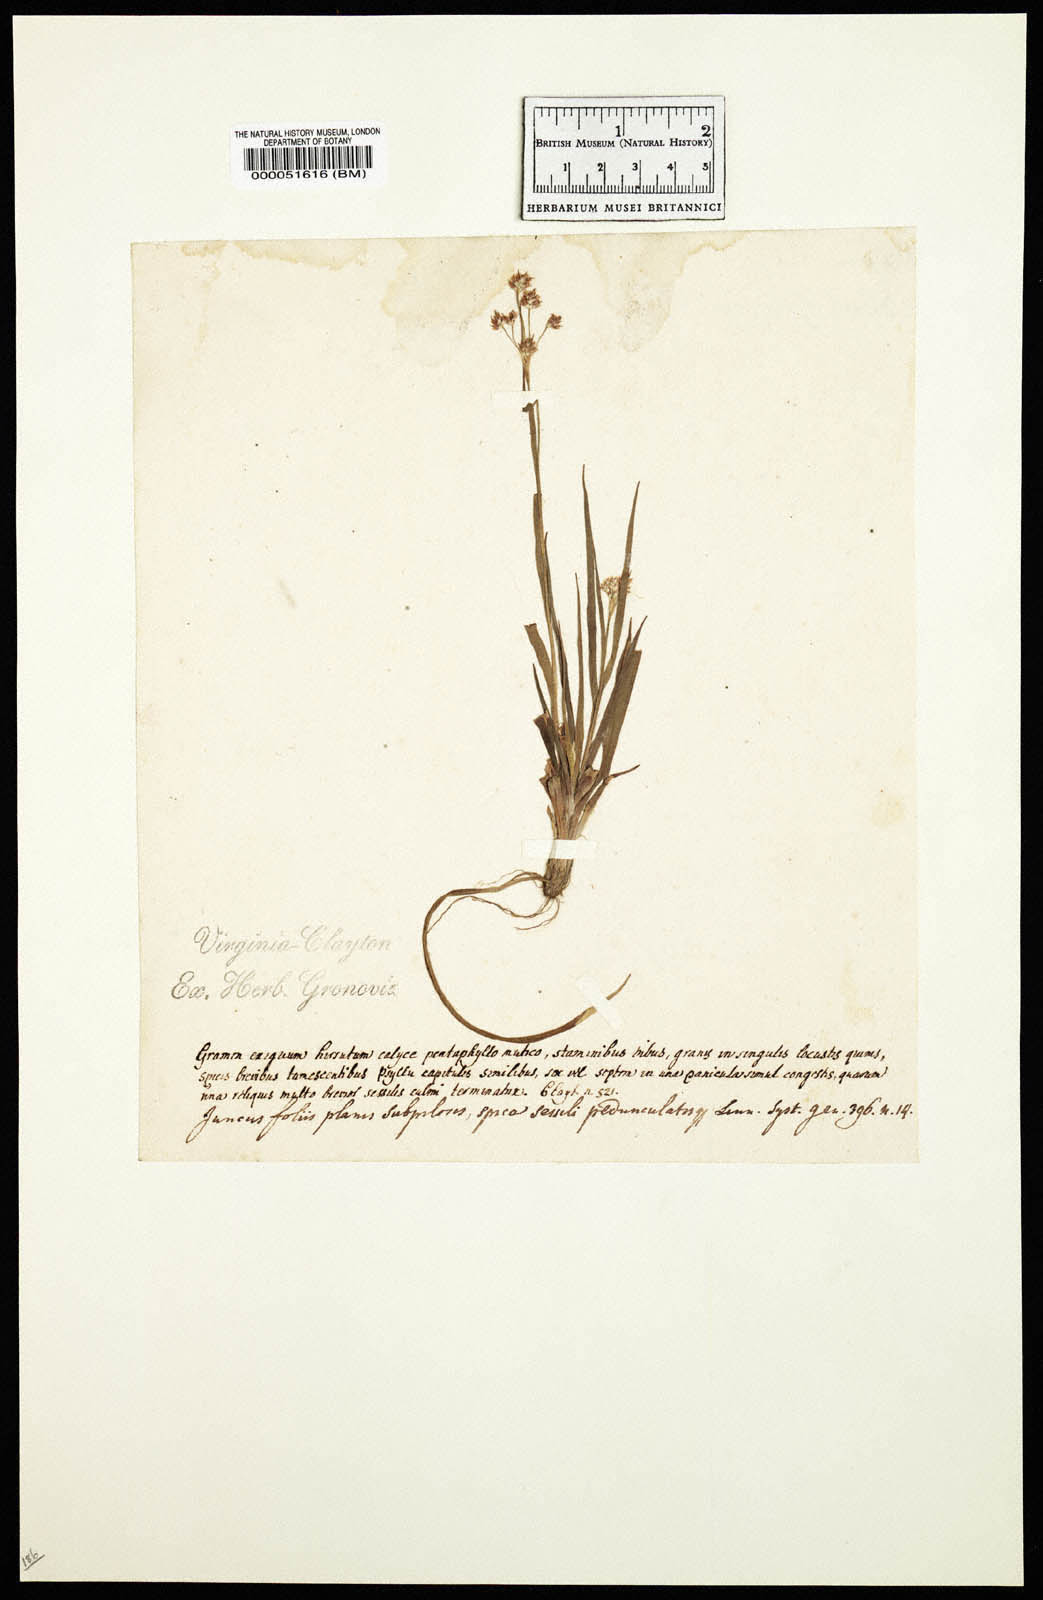 THE NATURAL HISTORY MUSEUM, LONDON
DEPARTMENT OF BOTANY
000051616 (BM)
1 2
BRITISH MUSEUM (NATURAL HISTORY)
1 2 3 4 5
HERBARIUM MUSEI BRITANNICI
Virginia-Clayton
Ex. Herb. Gronovii
Gramen exiguum hirsutum calyce pentaphyllo mutico, staminibus tribus, granis in singulis locustis quinis,
spicis brevibus tumescentibus Psyllii capitulis similibus, sex vel septem in una panicula simul congestis, quarum
una reliquis multo brevior sessilis culmi terminatur. Clayt. n. 521.
Juncus foliis planis subpilosis, spica sessili pedunculatisq Linn. Syst. gen. 396. n. 14.
186